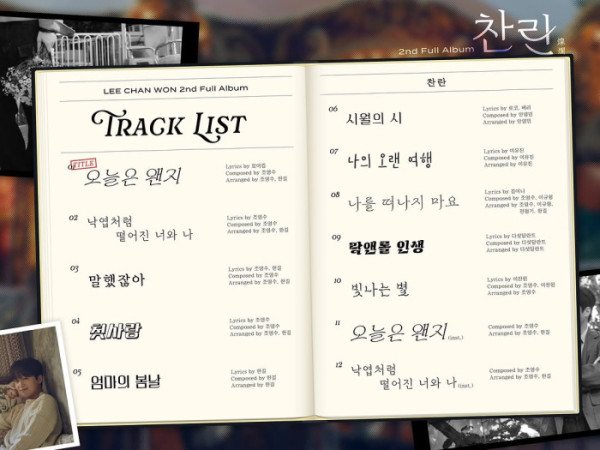 2nd Full Album
찬란
LEE CHAN WON 2nd Full Album
TRACK LIST
01
TITLE
오늘은 왠지
Composed by 조영수
Arranged by 조영수, 한길
02
낙엽처럼
떨어진 너와 나
Lyrics by 조영수
Composed by 조영수
Arranged by 조영수, 한길
03
말했잖아
Lyrics by 조영수, 한길
Composed by 조영수, 한길
Arranged by 조영수, 한길
04
첫사랑
Lyrics by 조영수
Composed by 조영수
Arranged by 조영수, 한길
05
엄마의 봄날
Lyrics by 한길
Composed by 한길
Arranged by 조영수, 한길
찬란
06
시월의 시
Lyrics by
Composed by
Arranged by
07
나의 오랜 여행
Lyrics by 이유진
Composed by 이유진
Arranged by 이유진
08
나를 떠나지 마요
Lyrics by
Composed by 조영수, 이규왕
Arranged by 조영수, 이규왕,
09
락앤롤 인생
Lyrics by 다섯달란트
Composed by 다섯달란트
Arranged by 다섯달란트
10
빛나는 별
Lyrics by 이찬원
Composed by 이찬원
Arranged by 조영수
11
오늘은 왠지(inst.)
Composed by 조영수
Arranged by 조영수, 한길
12
낙엽처럼
떨어진 너와 나(inst.)
Composed by 조영수
Arranged by 조영수, 한길